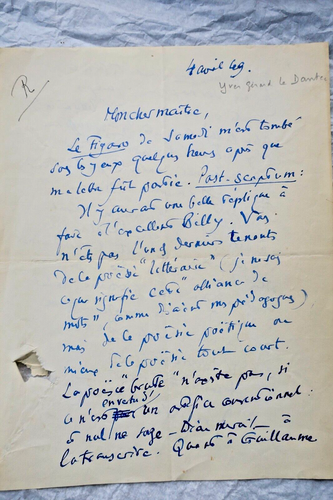 4 avril 49.
R
Yves Gérard le Dantec
Mon cher maître,
Le Figaro de samedi m'est tombé
sous les yeux quelques heures après que
ma lettre fût partie. Post-scriptum :
Il y aurait une belle réplique à
faire à l'excellent Billy. Vous
n'êtes pas l'un des derniers tenants
de la poésie "littéraire" (je ne sais
ce que signifie cette "alliance de
mots", comme disaient mes pédagogues)
mais de la poésie poétique ou
mieux de la poésie tout court.
La poésie "brute" n'existe pas, si
ce n'est en vertu d'un artifice conventionnel :
et nul ne sage - Dieu merci! - à
la transcrire. Quant à Guillaume